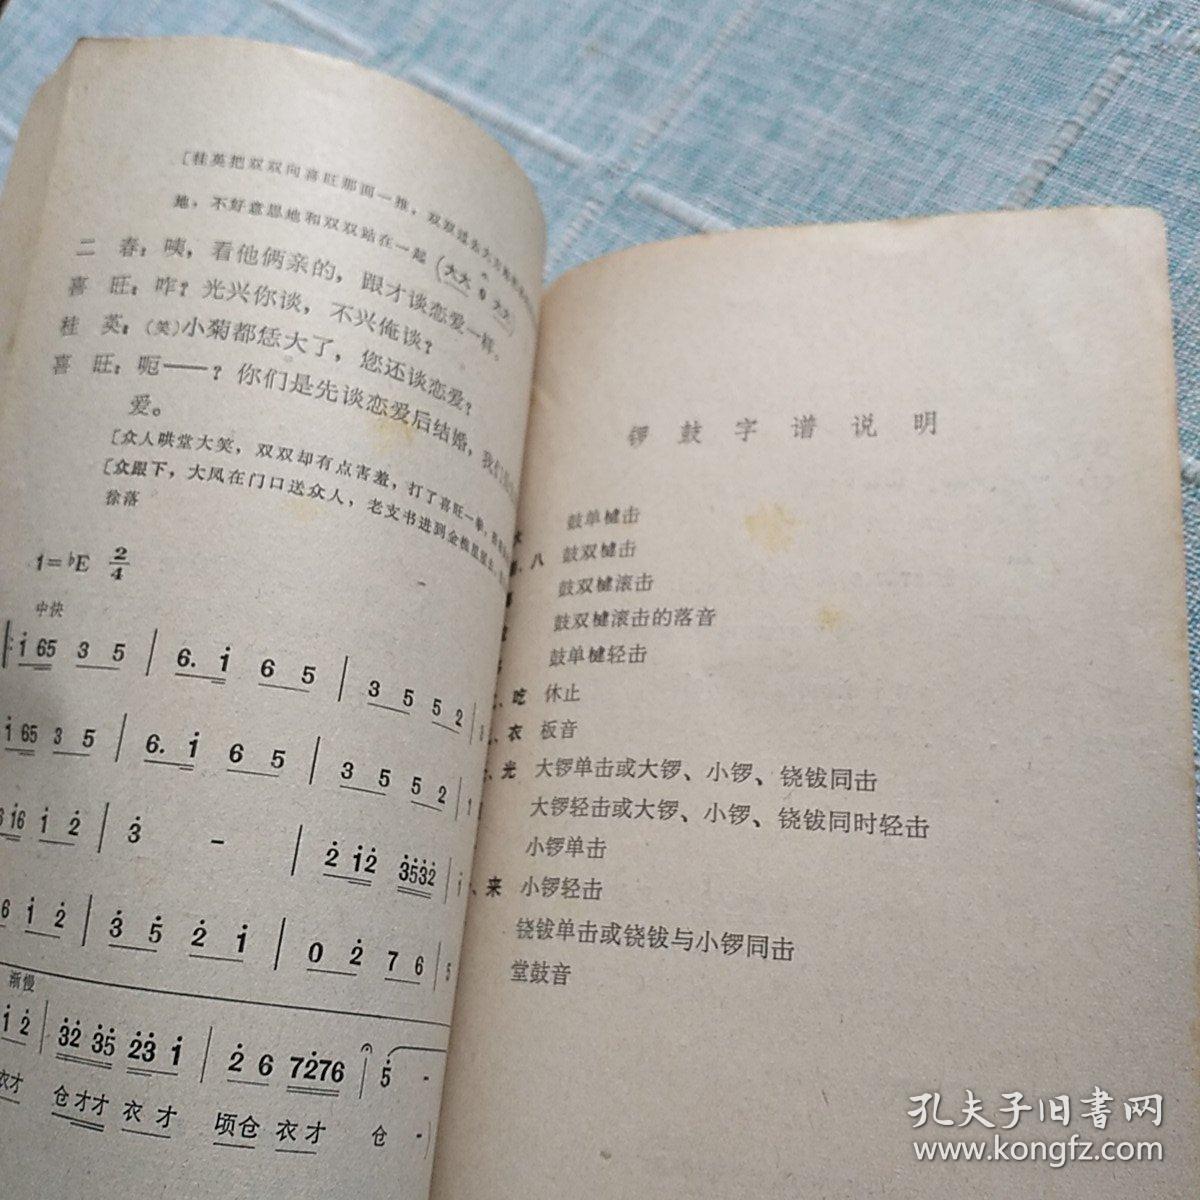 [桂英把双双向喜旺那面一推，双双过去大方
地，不好意思地和双双站在一起（大大
二　春：咦，看他俩亲的，跟才谈恋爱一样。
喜　旺：咋？光兴你谈，不兴俺谈？
桂　英：（笑）小菊都恁大了，您还谈恋爱？
喜　旺：呃——？你们是先谈恋爱后结婚，我们
爱。
[众人哄堂大笑，双双却有点害羞，打了喜旺一拳，
[众跟下，大凤在门口送众人，老支书进到
徐落
1=♭E 2/4
中快
i 65 3 5 | 6. i 6 5 | 3 5 5 2 |
i 65 3 5 | 6. i 6 5 | 3 5 5 2 |
i6 i 2 | 3 - | 2 i2 3532 |
6 i 2 | 3 5 2 i | 0 2 7 6 | 5
渐慢
i 2 | 32 35 23 i | 2 6 7276 | 5 -
衣才 仓才才 衣 才 顷仓 衣 才 仓 -
锣鼓字谱说明
鼓单楗击
、八 鼓双楗击
鼓双楗滚击
鼓双楗滚击的落音
鼓单楗轻击
、吃 休止
、衣 板音
、光 大锣单击或大锣、小锣、铙钹同击
大锣轻击或大锣、小锣、铙钹同时轻击
小锣单击
、来 小锣轻击
铙钹单击或铙钹与小锣同击
堂鼓音
孔夫子旧书网
www.kongfz.com